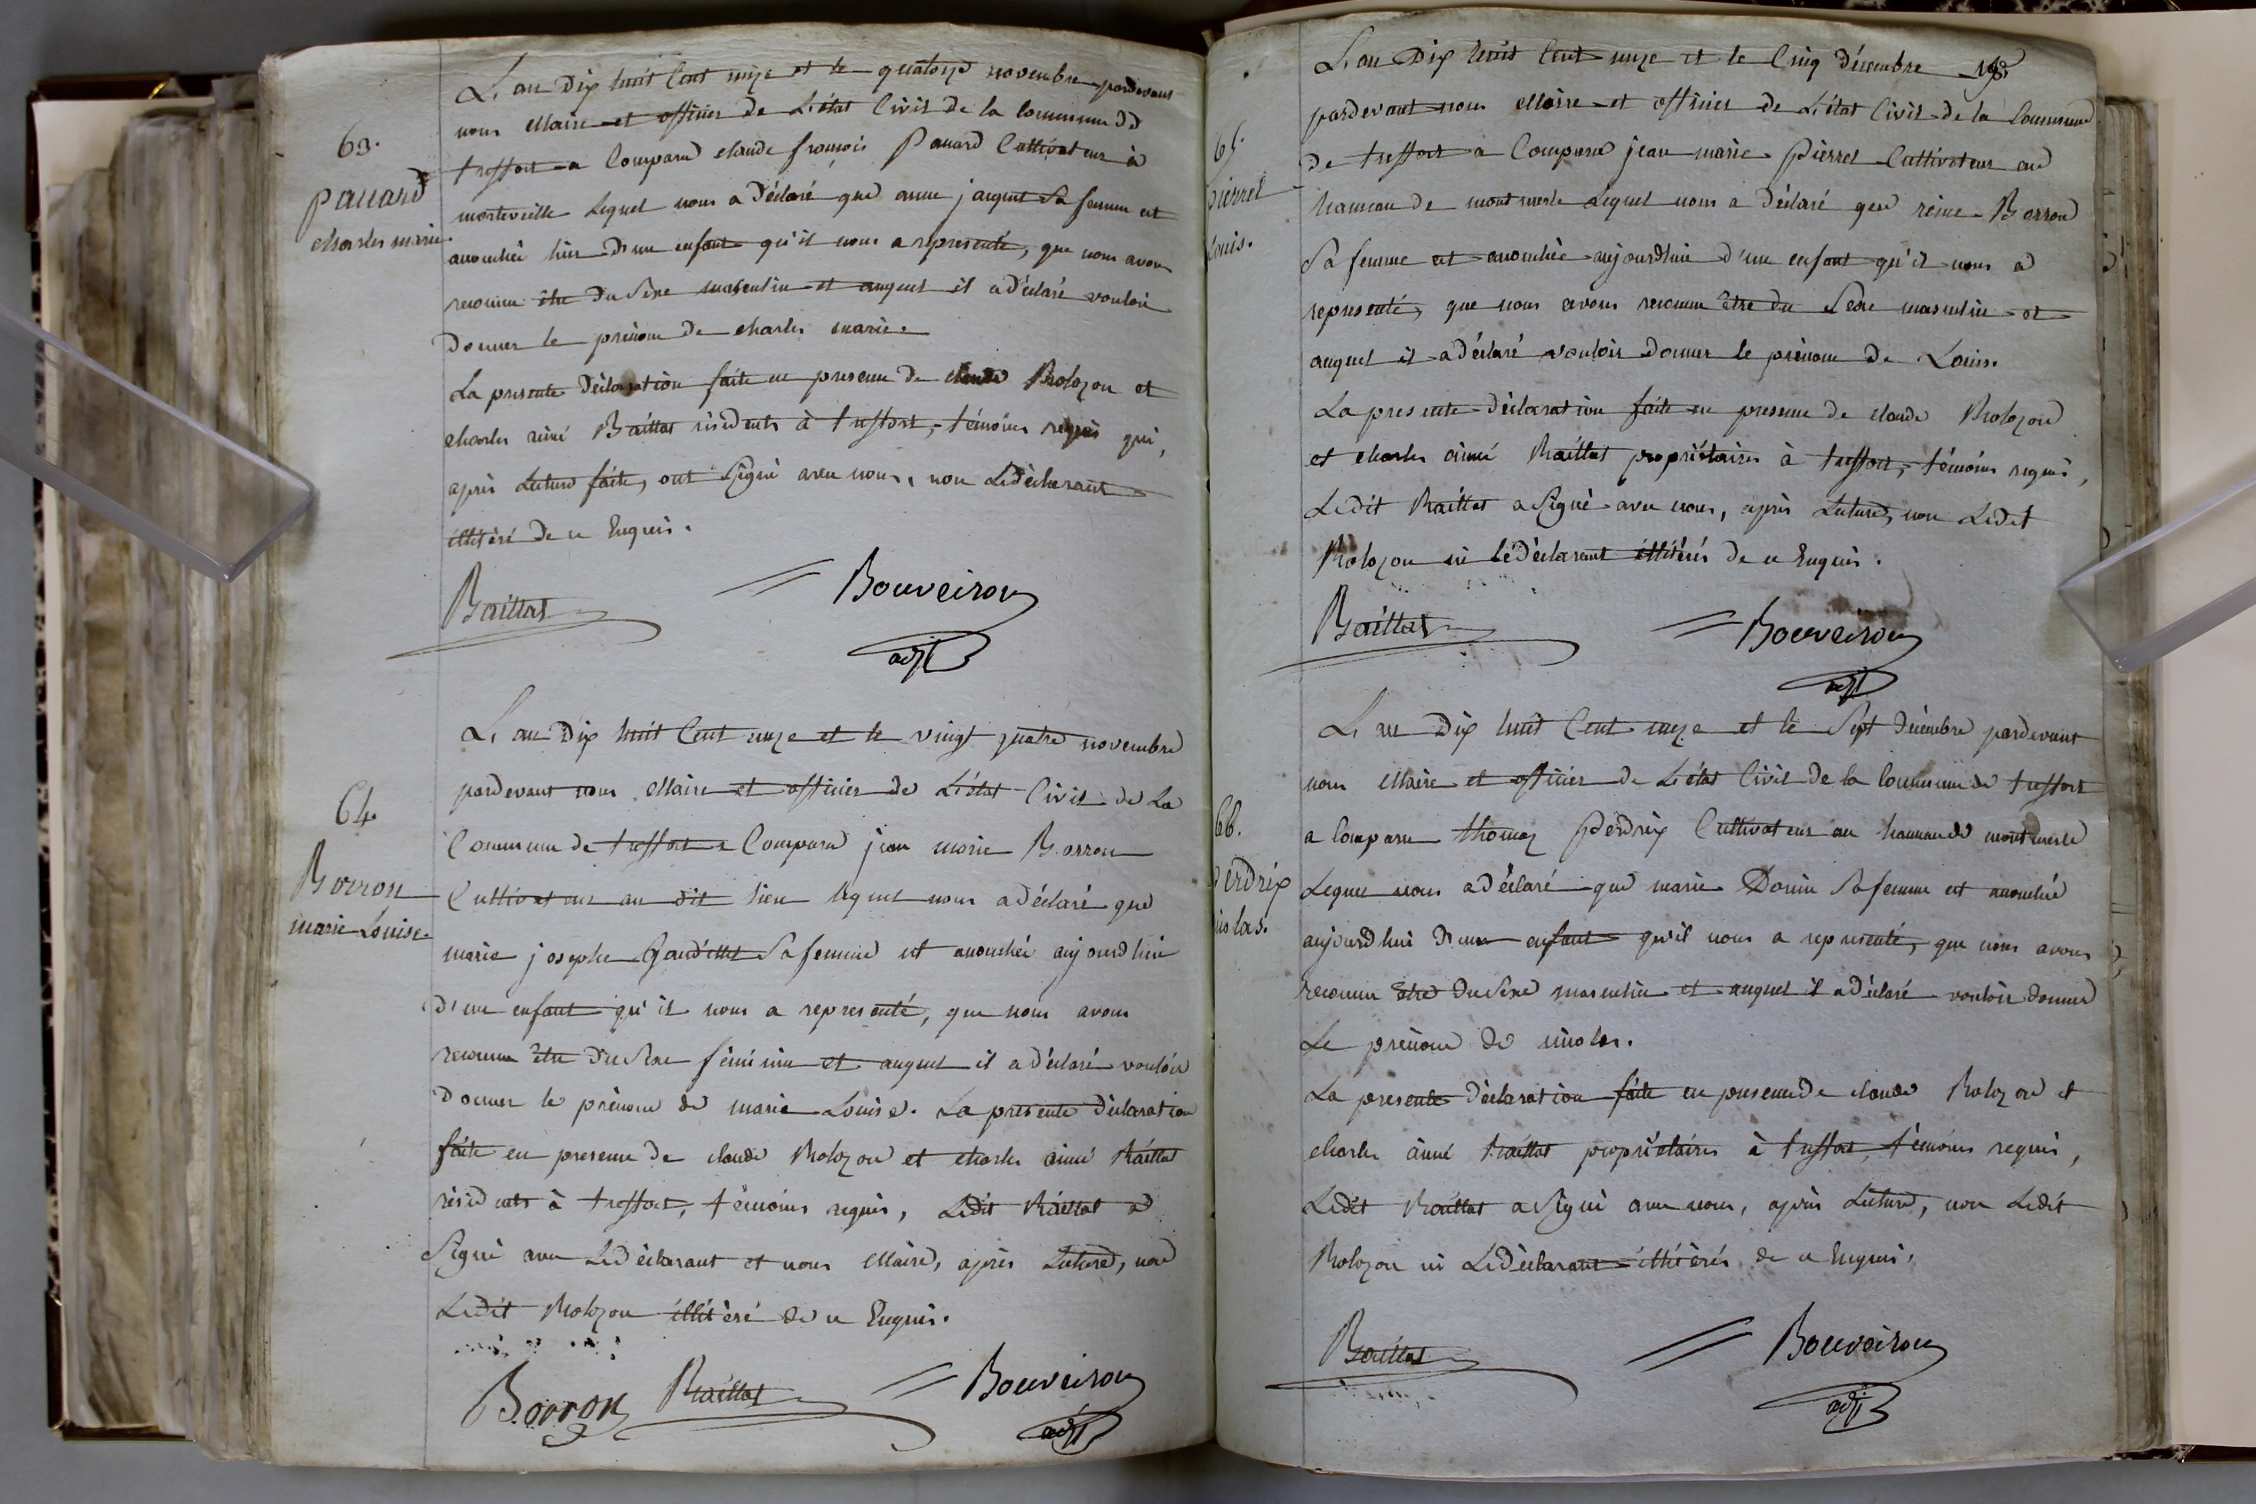 63.
Pauard
charles marie.
L'an Dix huit Cent onze et le quatorze novembre pardevant
nous Maire et officier de L'état Civil de la commune de
treffort a Comparu claude françois Pauard Cultivateur à
lequel nous a déclaré que anne jarquet Sa femme est
accouchée hier d'un enfant qu'il nous a representé, que nous avons
reconnu être du Sexe masculin et auquel il a déclaré vouloir
Donner le prénom de charles marie.
La presente déclaration faite en presence de claude Bolozon et
charles aimé Baillat résidents à treffort, témoins requis qui,
après Lecture faite, ont Signé avec nous, non Ledéclarant
illitéré de ce Enquis.
Baillat Bouveiron
adjt
64.
Borron
marie Louise.
L'an Dix huit Cent onze et le vingt quatre novembre
pardevant nous Maire et officier de L'état Civil de La
Commune de treffort a Comparu jean marie Borron
Cultivateur au dit lieu lequel nous a déclaré que
marie josephe Gaudillet Sa femme est accouchée aujourdhui
d'un enfant qu'il nous a representé, que nous avons
reconnu être du Sexe féminin et auquel il a déclaré vouloir
Donner le prénom de marie Louise. La presente déclaration
faite en presence de claude Bolozon et charles aimé Baillat
résidents à treffort, témoins requis, Ledit Baillat a
Signé avec Ledéclarant et nous Maire, après Lecture, non
Ledit Bolozon illitéré de ce Enquis.
Borron Baillat Bouveiron
adjt
65.
pierrel
Louis.
L'an Dix huit Cent onze et le Cinq décembre
pardevant nous Maire et officier de L'état Civil de la Commune
de treffort a Comparu jean marie Pierrel Cultivateur au
hameau de montmerle Lequel nous a déclaré que reine Borron
Sa femme est accouchée aujourdhui d'un enfant qu'il nous a
representé, que nous avons reconnu être du Sexe masculin et
auquel il a déclaré vouloir donner le prénom de Louis.
La presente déclaration faite en presence de claude Bolozon
et charles aimé Baillat propriétaires à treffort, témoins requis,
Ledit Baillat a Signé avec nous, après Lecture, non Ledit
Bolozon ni le déclarant illitérés de ce Enquis.
Baillat Bouveiron
adjt
66.
perdrix
nicolas.
L'an Dix huit Cent onze et le Sept décembre pardevant
nous Maire et officier de L'état Civil de la Commune de treffort
a Comparu thomas Perdrix Cultivateur au hameau de montmerle
Lequel nous a déclaré que marie Donin Sa femme est accouchée
aujourdhui d'un enfant qu'il nous a representé, que nous avons
reconnu être du Sexe masculin et auquel il a déclaré vouloir donner
Le prénom de nicolas.
La presente déclaration faite en presence de claude Bolozon et
charles aimé Baillat propriétaires à treffort, témoins requis,
Ledit Baillat a Signé avec nous, après Lecture, non Ledit
Bolozon ni Ledéclarant illitérés de ce Enquis.
Baillat Bouveiron
adjt